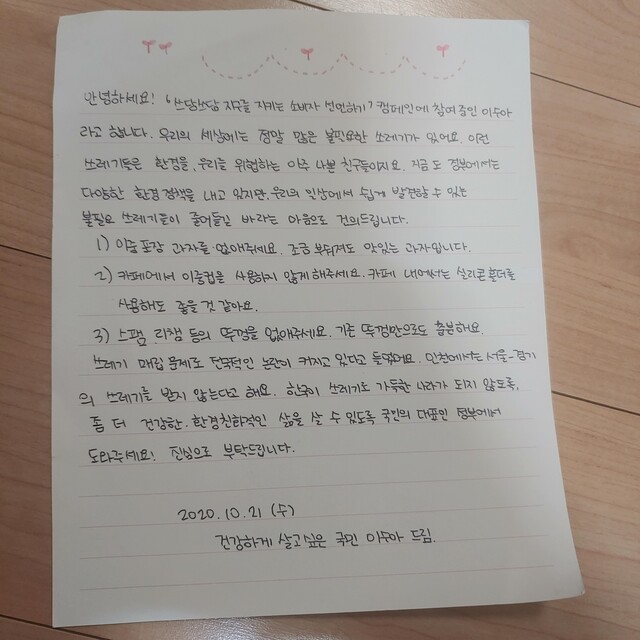 안녕하세요! '쓰담쓰담 지구를 지키는 소비자 선언하기' 캠페인에 참여중인 이수아
라고 합니다. 우리의 세상에는 정말 많은 불필요한 쓰레기가 있어요. 이런
쓰레기들은 환경을, 우리를 위협하는 아주 나쁜 친구들이지요. 지금도 정부에서는
다양한 환경 정책을 내고 있지만, 우리의 일상에서 쉽게 발견할 수 있는
불필요 쓰레기들이 줄어들길 바라는 마음으로 건의드립니다.
1) 이중포장 과자를 없애주세요. 조금 부숴져도 맛있는 과자입니다.
2) 카페에서 이중컵을 사용하지 않게 해주세요. 카페 내에서는 실리콘 홀더를
사용해도 좋을 것 같아요.
3) 스팸, 리챔 등의 뚜껑을 없애주세요. 기존 뚜껑만으로도 충분해요.
쓰레기 매립 문제로 전국적인 논란이 커지고 있다고 들었어요. 인천에서는 서울-경기
의 쓰레기를 받지 않는다고 해요. 한국이 쓰레기로 가득한 나라가 되지 않도록,
좀 더 건강한. 환경친화적인 삶을 살 수 있도록 국민의 대표인 정부에서
도와주세요! 진심으로 부탁드립니다.
2020.10.21 (수)
건강하게 살고싶은 국민 이수아 드림.